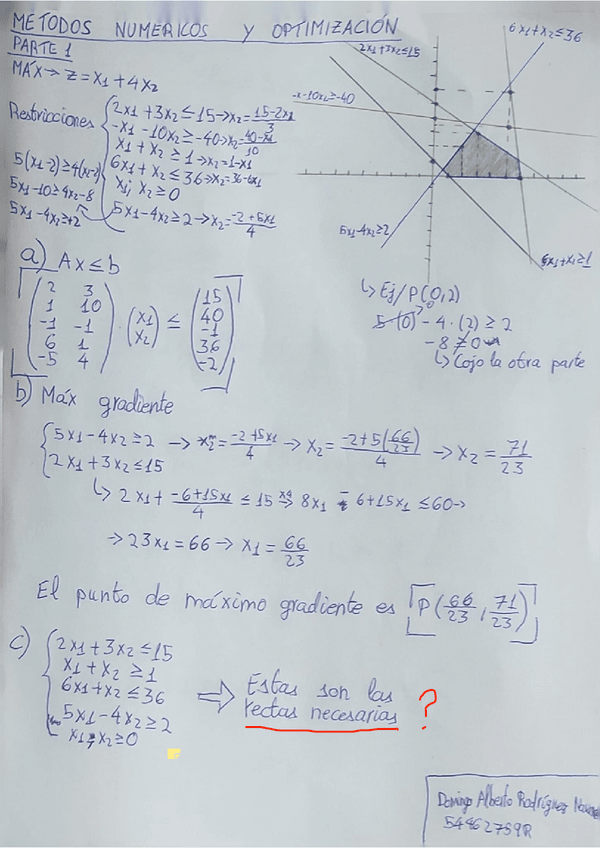 METODOS NUMERICOS Y OPTIMIZACIÓN
PARTE 1
MÁX → Z = X1 + 4X2
Restricciones
2X1 + 3X2 ≤ 15 → X2 = (15-2X1)/3
-X1 - 10X2 ≥ -40 → X2 = (40-X1)/10
X1 + X2 ≥ 1 → X2 = 1-X1
6X1 + X2 ≤ 36 → X2 = 36-6X1
X1, X2 ≥ 0
5X1 - 4X2 ≥ 2 → X2 = (-2+5X1)/4
5(X1-2) ≥ 4(X2-2)
5X1-10 ≥ 4X2-8
5X1-4X2 ≥ +2
2X1+3X2≤15
6X1+X2≤36
-X-10X2≥-40
5X1-4X2≥2
X1+X2≥1
↳ Ej/ P(0,2)
5·(0) - 4·(2) ≥ 2
-8 ≱ 0
↳ Cojo la otra parte
a) Ax ≤ b
2 3
1 10
-1 -1
6 1
-5 4
· (X1 X2) ≤
15
40
-1
36
-2
b) Máx gradiente
5X1 - 4X2 ≥ 2 → X2 = (-2+5X1)/4 → X2 = (-2+5(66/23))/4 → X2 = 71/23
2X1 + 3X2 ≤ 15
↳ 2X1 + (-6+15X1)/4 ≤ 15 →x4 8X1 - 6+15X1 ≤ 60 →
→ 23X1 = 66 → X1 = 66/23
El punto de máximo gradiente es P(66/23, 71/23)
c)
2X1 + 3X2 ≤ 15
X1 + X2 ≥ 1
6X1 + X2 ≤ 36
5X1 - 4X2 ≥ 2
X1, X2 ≥ 0
⇒ Estas son las
rectas necesarias ?
Domingo Alberto Rodríguez
54462759R